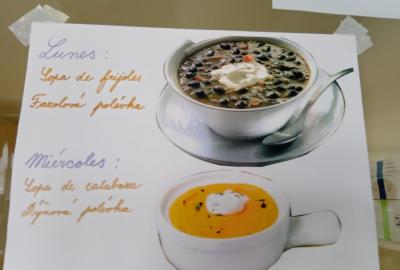 Lunes:
Sopa de frijoles
Fazolová polévka
Miércoles:
Sopa de calabaza
Dýňová polévka